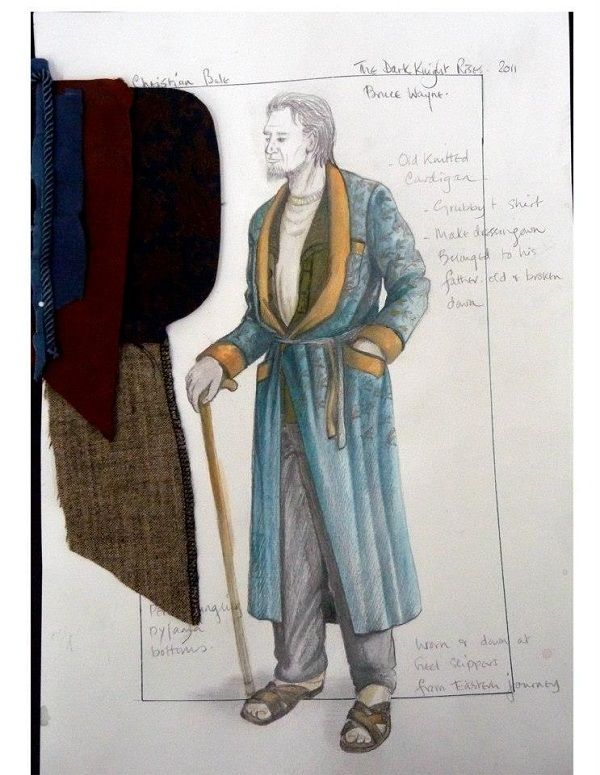 Christian Bale
The Dark Knight Rises. 2011
Bruce Wayne.
- Old Knitted
Cardigan
- Grubby t shirt
- Make dressingown
Belonged to his
father. old & broken
down
pyjama
bottoms.
worn & down at
heel slippers
from Eastern journey